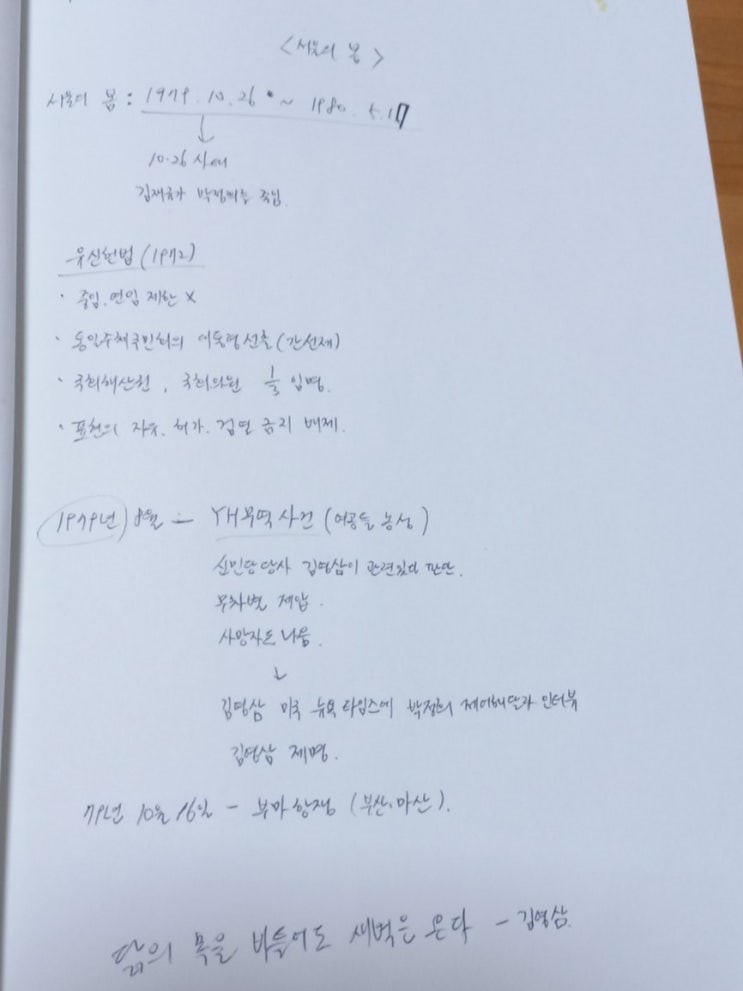 <서울의 봄>
서울의 봄 : 1979. 10. 26 ~ 1980. 5. 17
10·26 사태
김재규가 박정희를 죽임.
유신헌법 (1972)
· 중임, 연임 제한 X
· 통일주체국민회의 대통령선출 (간선제)
· 국회해산권, 국회의원 1/3 임명.
· 표현의 자유, 허가, 검열 금지 배제.
1979년) 8월 - YH무역사건 (여공들 농성)
신민당당사 김영삼이 관련있다 판단.
무차별 제압.
사망자도 나옴.
↓
김영삼 미국 뉴욕타임스에 박정희 제어해달라 인터뷰
김영삼 제명.
79년 10월 16일 - 부마항쟁 (부산, 마산).
닭의 목을 비틀어도 새벽은 온다 - 김영삼.